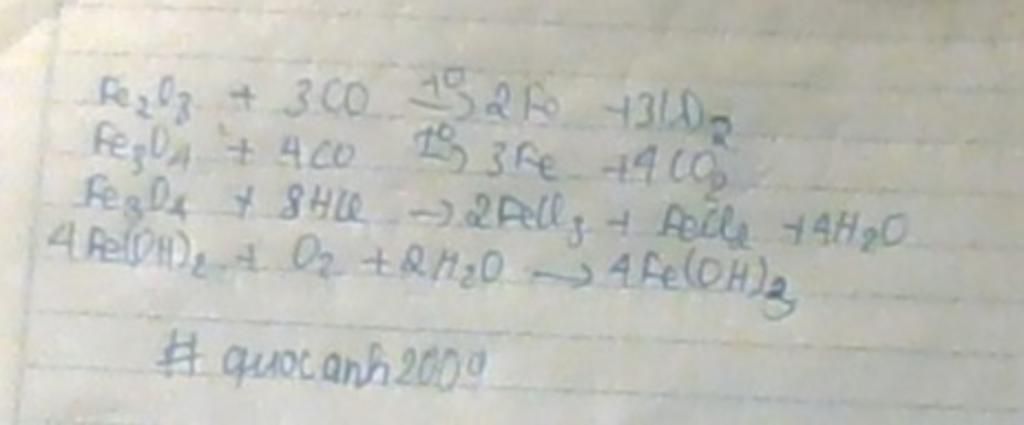 Fe₂O₃ + 3CO -t°-> 2Fe + 3CO₂
Fe₃O₄ + 4CO -t°-> 3Fe + 4CO₂
Fe₃O₄ + 8HCl → 2FeCl₃ + FeCl₂ + 4H₂O
4Fe(OH)₂ + O₂ + 2H₂O → 4Fe(OH)₃
# quocanh2009